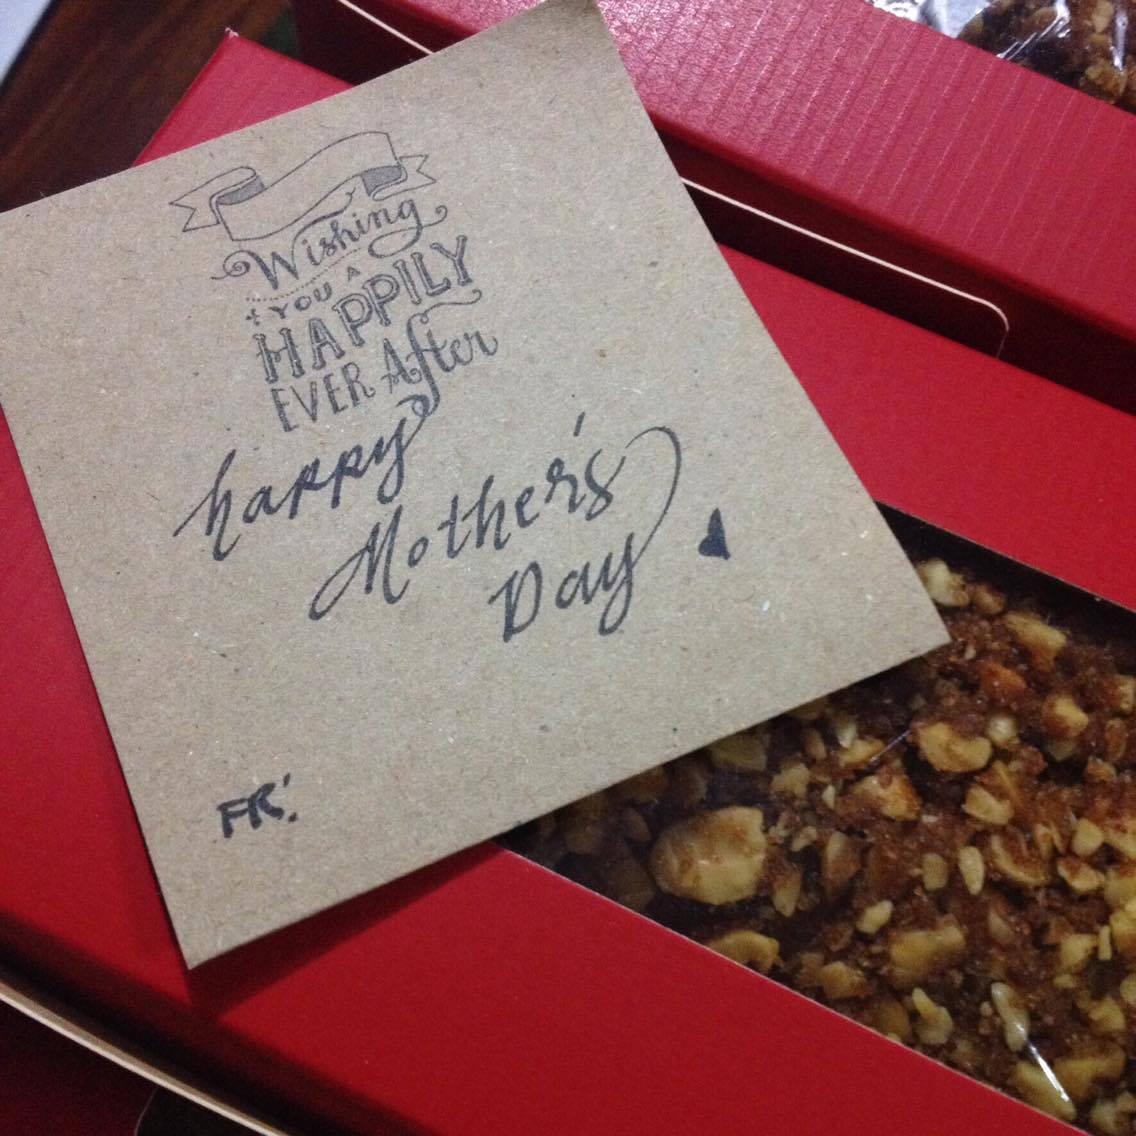 Wishing
YOU A
HAPPILY
EVER After
happy
Mother's
Day
FR: